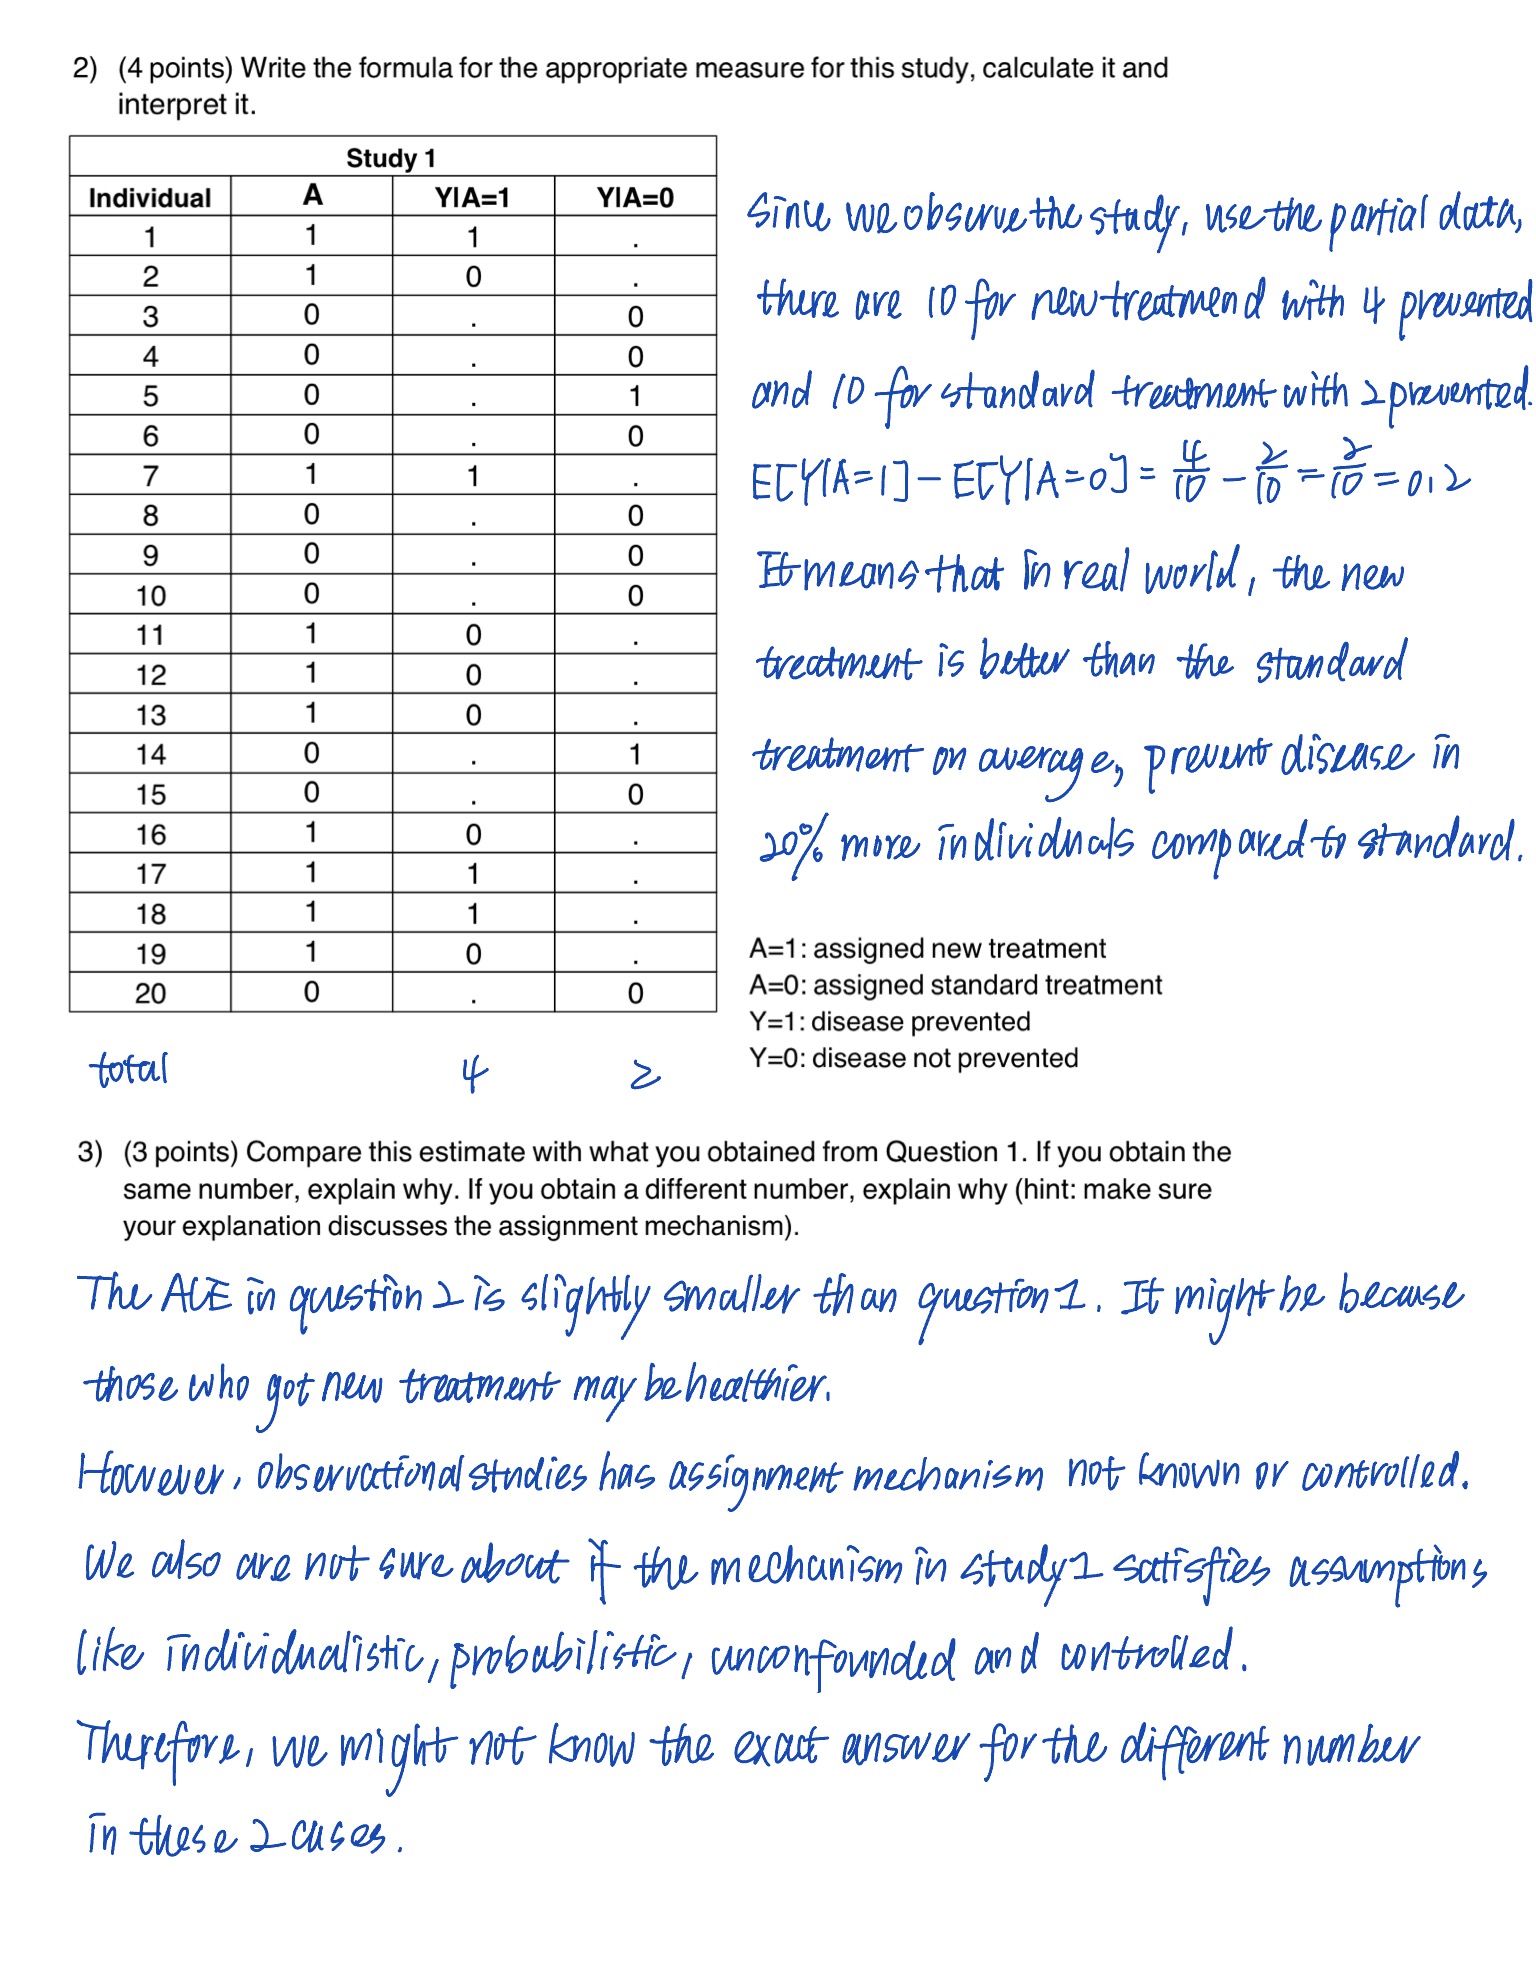 2) (4 points) Write the formula for the appropriate measure for this study, calculate it and
interpret it.
Study 1
Individual A Y|A=1 Y|A=0
1 1 1 .
2 1 0 .
3 0 . 0
4 0 . 0
5 0 . 1
6 0 . 0
7 1 1 .
8 0 . 0
9 0 . 0
10 0 . 0
11 1 0 .
12 1 0 .
13 1 0 .
14 0 . 1
15 0 . 0
16 1 0 .
17 1 1 .
18 1 1 .
19 1 0 .
20 0 . 0
total 4 2
Since we observe the study, use the partial data,
there are 10 for new treatmend with 4 prevented
and 10 for standard treatment with 2 prevented.
E[Y|A=1] - E[Y|A=0] = 4/10 - 2/10 = 2/10 = 0.2
It means that in real world, the new
treatment is better than the standard
treatment on average, prevent disease in
20% more individuals compared to standard.
A=1: assigned new treatment
A=0: assigned standard treatment
Y=1: disease prevented
Y=0: disease not prevented
3) (3 points) Compare this estimate with what you obtained from Question 1. If you obtain the
same number, explain why. If you obtain a different number, explain why (hint: make sure
your explanation discusses the assignment mechanism).
The ACE in question 2 is slightly smaller than question 1. It might be because
those who got new treatment may be healthier.
However, observational studies has assignment mechanism not known or controlled.
We also are not sure about if the mechanism in study 1 satisfies assumptions
like individualistic, probabilistic, unconfounded and controlled.
Therefore, we might not know the exact answer for the different number
in these 2 cases.